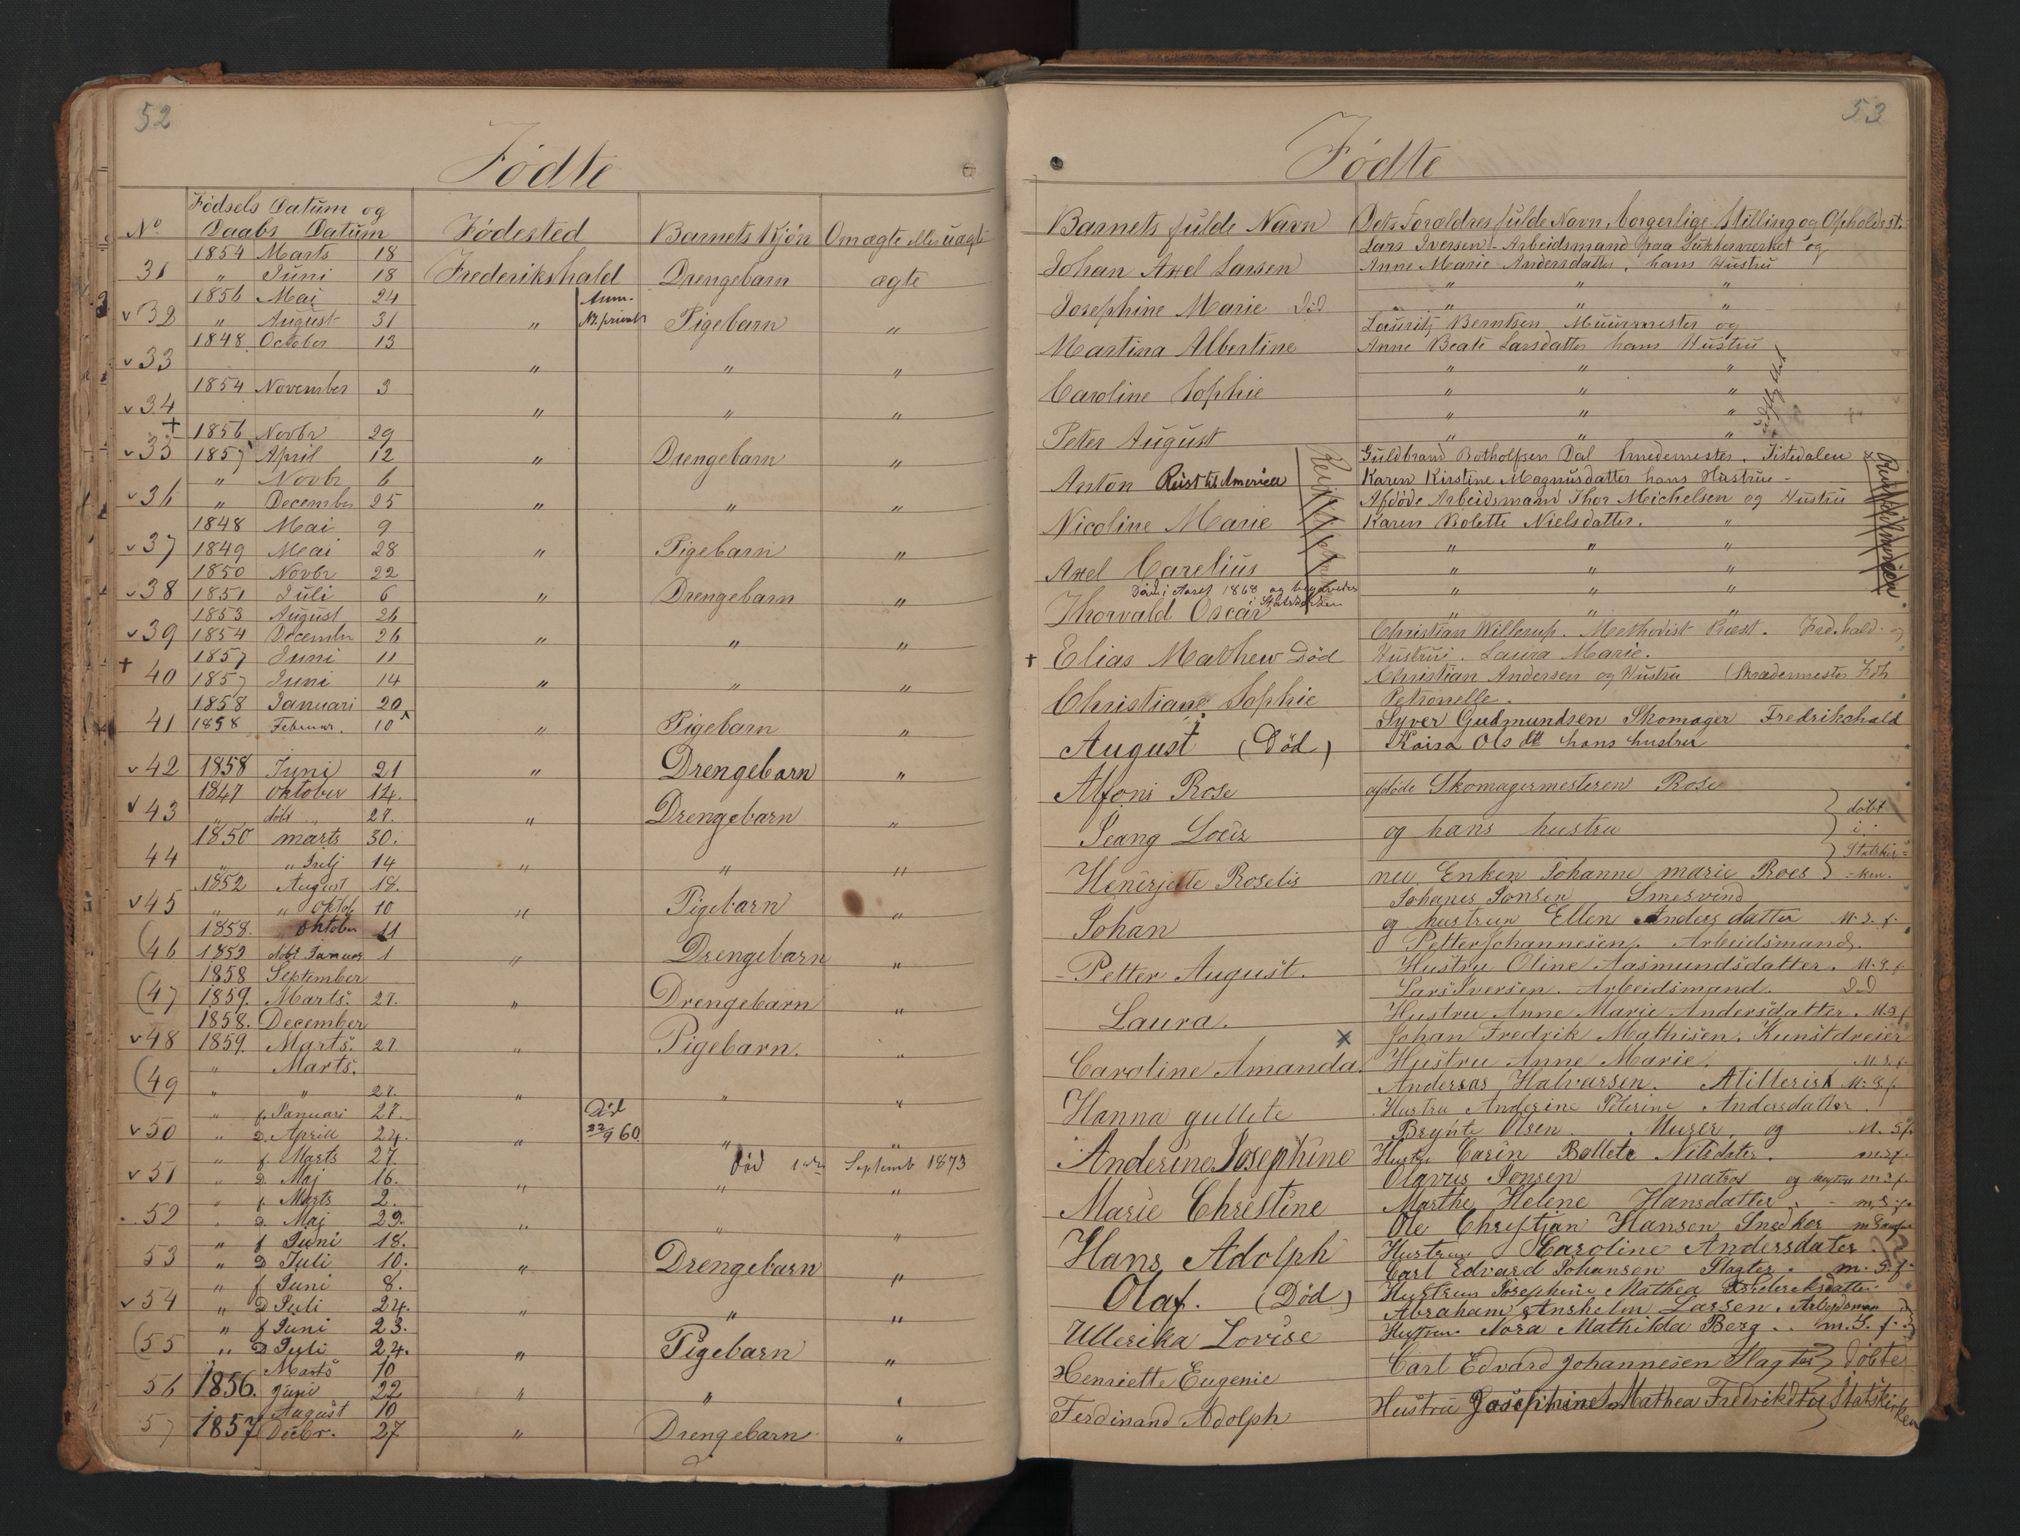 52
Fødte
No
Fødsels Datum og
Daabs Datum
Fødested
Barnets Kjøn
Om ægte eller uægte
1854 Marts 18
31 " Juni 18 Frederikshald Drengebarn ægte
1856 Mai 24
v 32 " August 31 " Pigebarn "
1848 October 13
v 33 " " "
1854 November 3
v 34 " " "
+ 1856 Novbr 29
v 35 1857 April 12 " Drengebarn "
" Novbr 6
v 36 " December 25 " " "
1848 Mai 9
v 37 1849 Mai 28 " Pigebarn "
1850 Novbr 22
v 38 1851 Juli 6 " Drengebarn "
1853 August 26
v 39 1854 December 26 " " "
1857 Juni 11
+ 40 1857 Juni 14 " " "
1858 Januari 20
41 1858 Februar. 10 " Pigebarn "
v 42 1858 Juni 21 " Drengebarn "
1847 oktober 14.
v 43 " døbt " 27. " Drengebarn "
1850 marts 30.
44 " " Julj 14 " " "
1852 August 18.
v 45 " " oktob 10 " Pigebarn "
1858. oktober 11
(46 1859 døbt Januar 1 " Drengebarn "
1858 September
(47 1859. Marts. 27. " Drengebarn "
1858. December
v 48 1859. Marts. 27. " Pigebarn. "
" Marts.
(49 " " 27. " " "
" f. Januari 27. Død
v 50 " D. Aprill 24. " 22/9 60. " "
" f. Marts 27 Død Septemb 1873
v 51 " D. Maj 16. " " "
" f. Marts 2.
52 " D. Maj 29. " " "
" f Juni 18.
53 " D Juli 10. " Drengebarn "
" f Juni 8.
v 54 " D Juli 24. " " "
" f Juni 23.
(55 " D Juli 24. " Pigebarn "
Marts 10
56 1856. Juni 22 " " "
August 10
57 1857 Decbr. 27 " Drengebarn "
53
Fødte
Barnets fulde Navn
Dets Forældres fulde Navn, borgerlige Stilling og Opholdsst.
Lars Iversen - Arbeidsmand paa Sukkerværket og
Johan Axel Larsen Anne Marie Andersdatter, hans Hustru
" " "
Josephine Marie Død " " "
Lauritz Berntsen Muurmester og
Martina Albertine Anne Beate Larsdatter hans Hustru
" " "
Caroline Sophie " " "
" " "
Peter August " " "
Guldbrand Botholfsen Dal Smedemester, Tistedalen &
Anton Reist til America Karen Kirstine Magnusdatter hans Hustrue -
Afdøde Arbeidsmand Thor Michelsen og Hustru
Nicoline Marie Karen Bolette Nielsdatter. "
" " "
Axel Carelius " " "
Død i Aaret 1868 og begravedes
i Statskirken
Thorvald Oscar " " "
" " "
Christian Willerup. Methodist Præst. Fredhald. og
+ Elias Mathew Død Hustru. Laura Marie.
Christian Andersen og Hustru (Skrædermester Fdh
Christiane Sophie Petronelle.
Syver Gudmundsen Skomager Fredrikshald
August (Død) Kaisa Ols dtt hans hustru
Alfoni Rose afdøde Skomagermesteren Rose
Jeang Loeiz og hans hustru
døbt
i
Statskir=
=ken.
Henerjette Roselis nu Enken Johanne marie Roes
Johanes Jonsen Smesvend
Johan og hustrun Ellen Anders datter M. S. f.
Petter Johannesen, Arbeidsmand.
- Petter August. Hustru Oline Aasmundsdatter. M. S. f
Lars Iversen. Arbeidsmand. Død
Laura. Hustru Anne Marie Andersdatter. M. S. f
Johan Fredrik Mathisen. Kunstdreier
Caroline Amanda. x Hustru Anne Marie. M. S. f.
Andersas Halvarsen. Atillerist M. S. f
Hanna gullete Hustru Anderine Peterine Andersdatter.
Brynte Olsen. Murer og M. S f.
Anderine Josephine Hustru Carin Bollete Nilsdater. m. S. f.
Olavus Jonsen matros og m S f.
Marie Chrestine Marthe Helene Hansdatter. - m. S. f.
Ole Chrestjan Hansen Snedker m S
Hans Adolph Hustrun Caroline Andersdater
Carl Edvard Johansen Slagter. m. S. f.
Olaf. (Død) Hustrun Josephine Mathea Frideriksdatter
Abraham Anshelm Larsen Arbejdsman
Ullerika Lovise Hustrun Nora Mathilda Berg. m. S. f.
Henriette Eugenie Carl Edvard Johannesen Slagter døbte
Ferdinand Adolph Hustru Josephine Mathea Statskirken